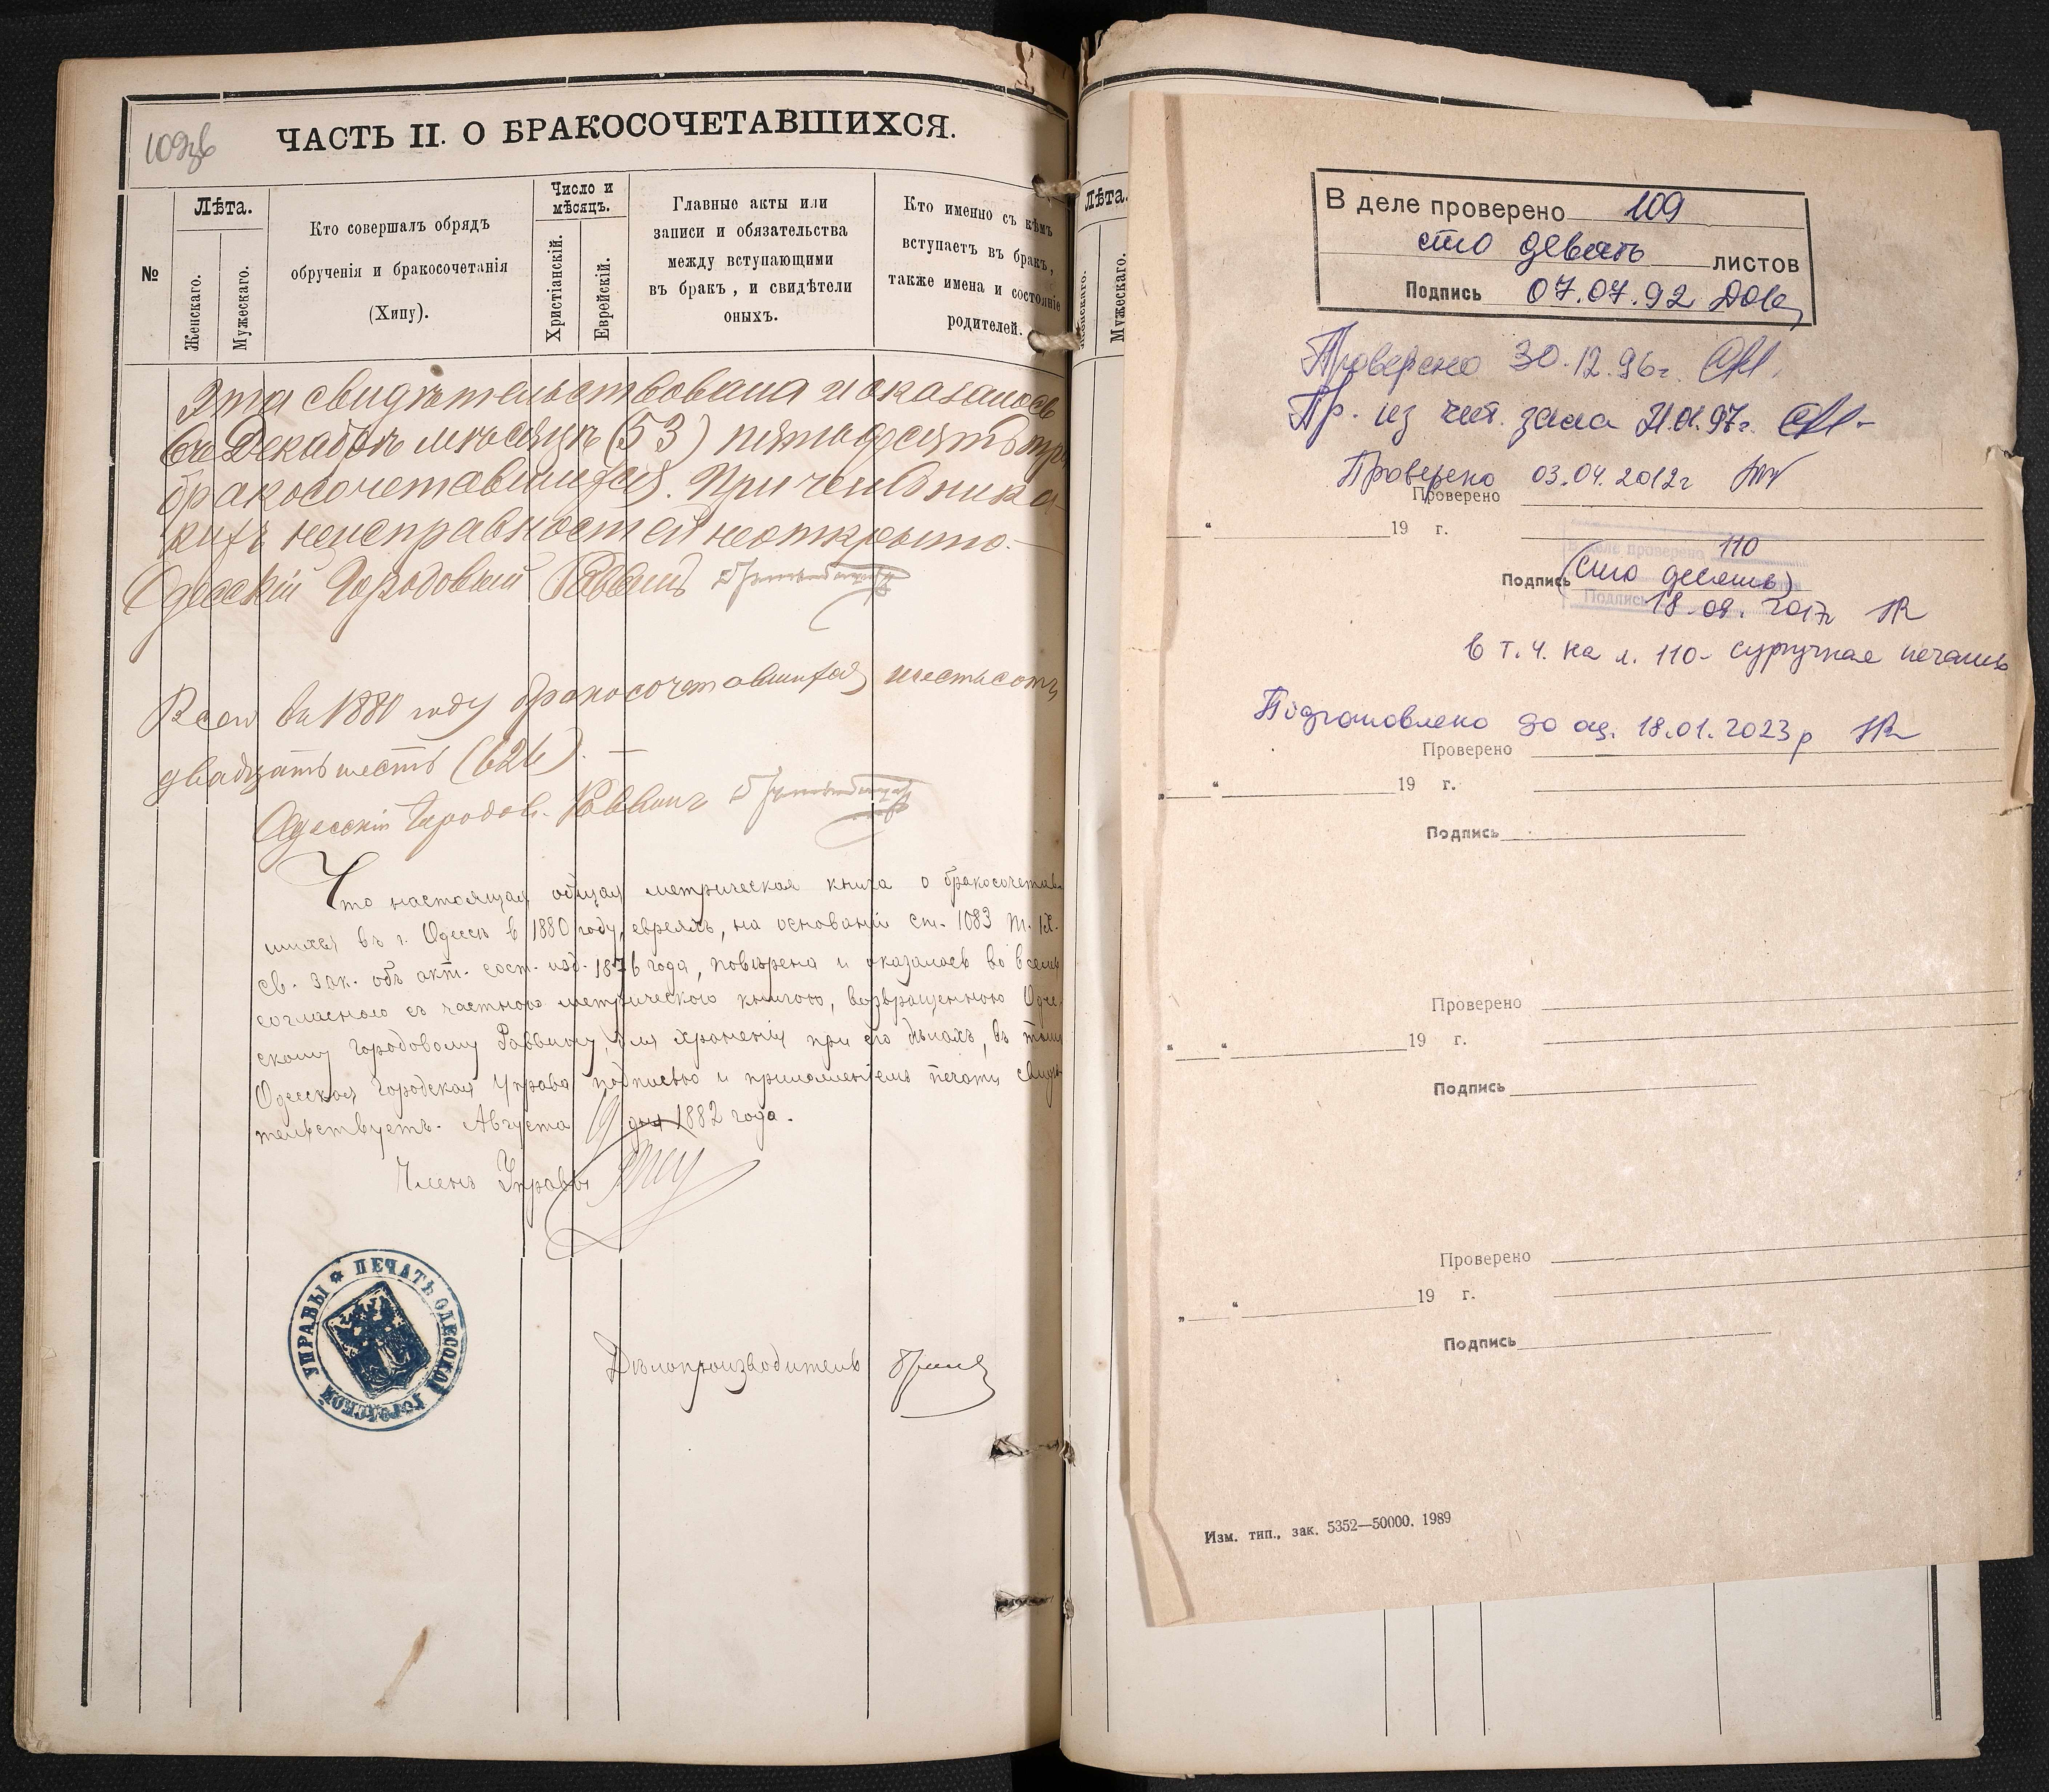 109об
ЧАСТЬ II. О БРАКОСОЧЕТАВШИХСЯ.
№
Лѣта.
Женскаго.
Мужескаго.
Кто совершалъ обрядъ
обрученія и бракосочетанія
(Хипу).
Число и
мѣсяцъ.
Христіанскій.
Еврейскій.
Главные акты или
записи и обязательства
между вступающими
въ бракъ, и свидѣтели
оныхъ.
Кто именно съ кѣмъ
вступаетъ въ бракъ,
также имена и состояніе
родителей.
свидѣтельствована и оказалось
въ Декабрѣ мѣсяцѣ (53) пятьдесятъ три
бракосочетавшихся. При чемъ ника-
кихъ неисправностей не открыто.—
Одесскій Городовый Раввинъ
Всего въ 1880 году бракосочетавшихся шестьсотъ
двадцать шесть (626). —
Одесскій Городов. Раввинъ
Что настоящая общая метрическая книга о бракосочетав-
шихся въ г. Одессѣ въ 1880 году, евреяхъ, на основаніи ст. 1083 т. IX.
св. зак. объ акт. сост. изд. 1876 года, повѣрена и оказалась во всемъ
согласною съ частною метрическою книгою, возвращенною Одес-
скому Городовому Раввину, для храненія при его дѣлахъ, въ томъ
Одесская Городская Управа подписью и приложеніемъ печати свидѣ-
тельствуетъ. Августа 19 дня 1882 года.
Членъ Управы
ПЕЧАТЬ ОДЕССКОЙ ГОРОДСКОЙ УПРАВЫ
Дѣлопроизводитель
Лѣта.
Женскаго.
Мужескаго.
В деле проверено 109
сто девять листов
Подпись 07.07.92
Проверено 30.12.96г.
Пр. из чит. зала 21.01.97г.
Проверено 03.04.2012г
Проверено
" 19 г.
В деле проверено 110
Подпись (сто десять)
Подпись 18.09.2017г
в т.ч. на л. 110- сургучная печать
Підготовлено до оц. 18.01.2023р
Проверено
" " 19 г.
Подпись
Проверено
" " 19 г.
Подпись
Проверено
" " 19 г.
Подпись
Изм. тип., зак. 5352—50000. 1989